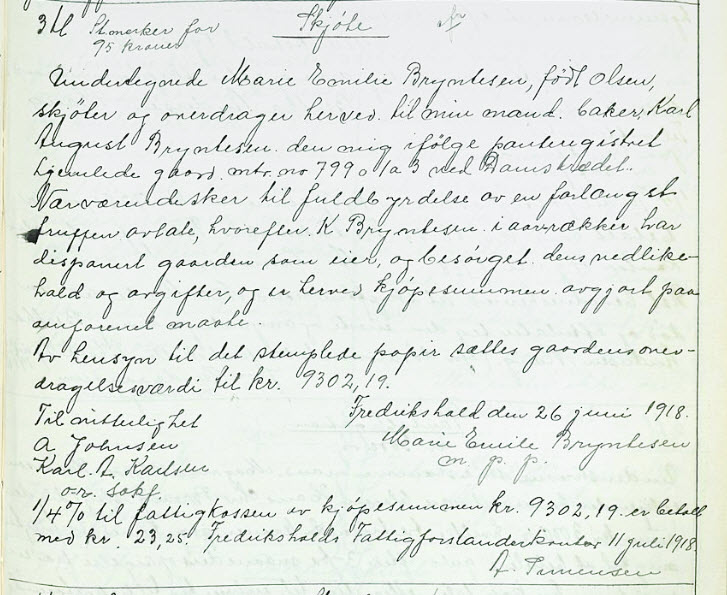 3tl St.merker for Skjöte
95 kroner
Undertegnede Marie Emilie Bryntesen, født Olsen,
skjöter og overdrager herved til min mand. baker, Karl
August Bryntesen. den mig ifölge panteregistret
hjemlede gaard. mtr. no 799 o la 3 ved Damstrædet.
Nærværende sker til fuldbyrdelse av en forlængst
truffen avtale, hvorefter. K Bryntesen. i aarrækker har
disponert gaarden som eier, og besörget. dens vedlike-
hold og avgifter, og er herved kjöpesummen. avgjort paa
omforenet maate.
Av hensyn til det stemplede papir sættes gaardens over-
dragelsesværdi til kr. 9302,19.
Fredrikshald den 26 juni 1918.
Til vitterlighet
Marie Emilie Bryntesen
A Johnsen
m p. p.
Karl. A. Karlsen
o.r. sakf.
1/4% til fattigkassen av kjöpesummen kr. 9302.19. er betalt
med kr. 23,25. Fredrikshalds Fattigforstanderkontor 11 juli 1918.
A.